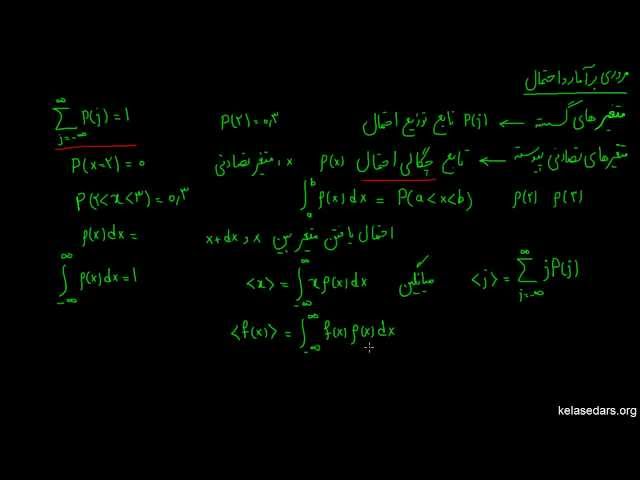 مروری بر آمار و احتمال
متغیرهای گسسته ← P(j) تابع توزیع احتمال P(۲) = ۰,۳ ∑_{j=-∞}^{∞} P(j) = 1
متغیرهای تصادفی پیوسته ← تابع چگالی احتمال ρ(x) x ، متغیر تصادفی P(x=۲) = ۰
ρ(۲) ρ(۳) ∫_a^b ρ(x) dx = P(a<x<b) P(۲<x<۳) = ۰,۳
احتمال یافتن متغیر بین x و x+dx ρ(x) dx =
<j> = ∑_{j=-∞}^{∞} j P(j) میانگین <x> = ∫_{-∞}^{∞} x ρ(x) dx ∫_{-∞}^{∞} ρ(x) dx = 1
<f(x)> = ∫_{-∞}^{∞} f(x) ρ(x) dx
kelasedars.org